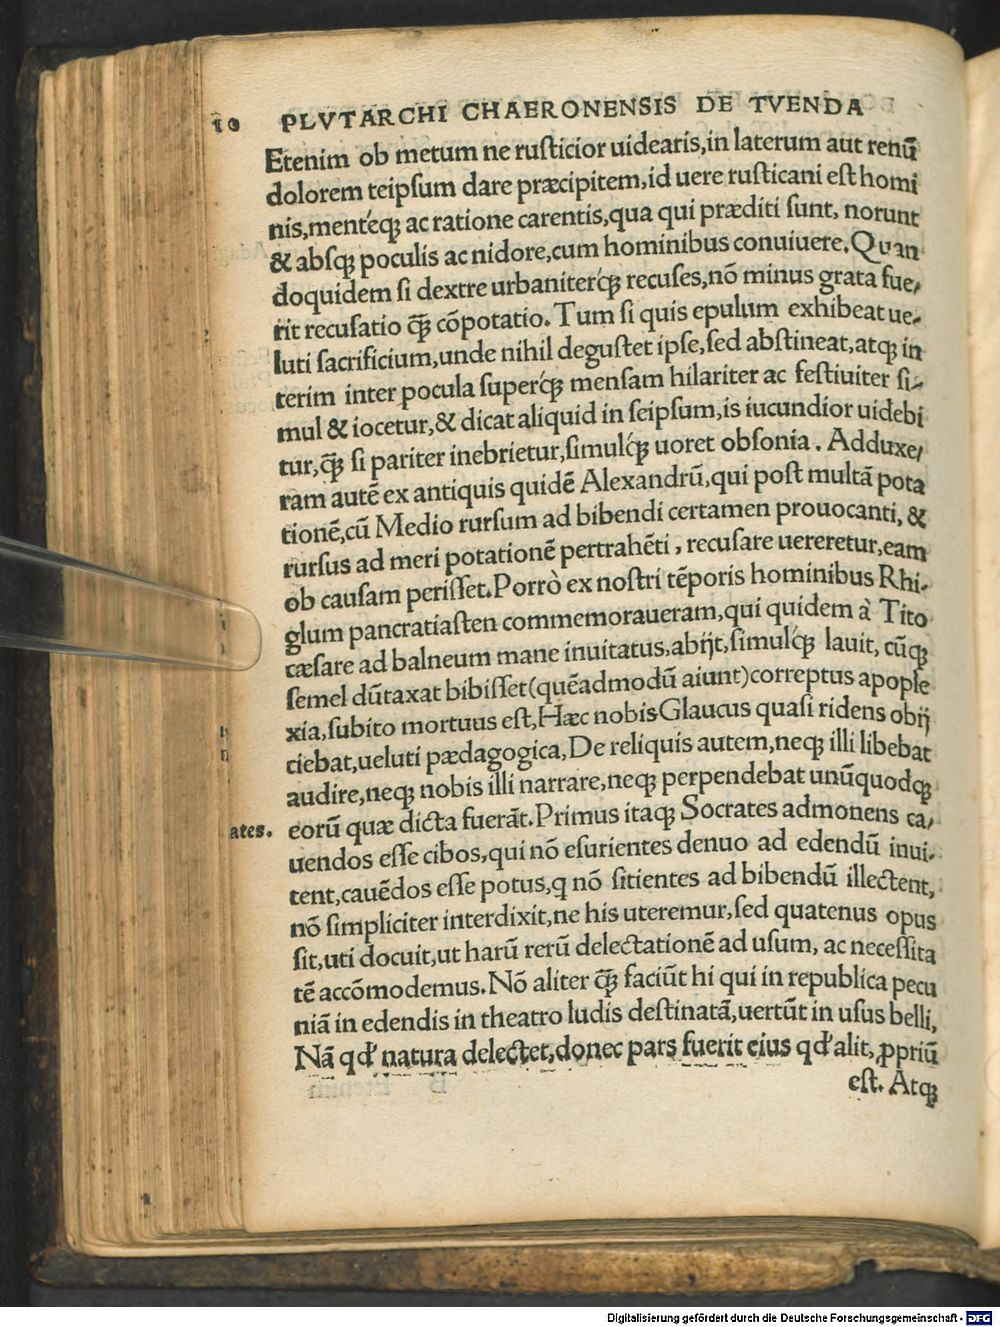 10 PLVTARCHI CHAERONENSIS DE TVENDA
Etenim ob metum ne rusticior uidearis,in laterum aut renū
dolorem teipsum dare præcipitem,id uere rusticani est homi
nis,mentéqꝫ ac ratione carentis,qua qui præditi sunt, norunt
& absqꝫ poculis ac nidore,cum hominibus conuiuere.Quan
doquidem si dextre urbaniterq́ꝫ recuses,nō minus grata fue,
rit recusatio q̄ꝫ cōpotatio.Tum si quis epulum exhibeat ue-
luti sacrificium,unde nihil degustet ipse,sed abstineat,atqꝫ in
terim inter pocula superq́ꝫ mensam hilariter ac festiuiter si-
mul & iocetur,& dicat aliquid in seipsum,is iucundior uidebi
tur,q̄ꝫ si pariter inebrietur,simulq́ꝫ uoret obsonia. Adduxe,
ram autē ex antiquis quidē Alexandrū,qui post multā pota
tionē,cū Medio rursum ad bibendi certamen prouocanti, &
rursus ad meri potationē pertrahēti, recusare uereretur,eam
ob causam perisset.Porrò ex nostri tēporis hominibus Rhi-
glum pancratiasten commemoraueram,qui quidem à Tito
cæsare ad balneum mane inuitatus,abijt,simulq́ꝫ lauit, cūqꝫ
semel dūtaxat bibisset(quēadmodū aiunt)correptus apople
xia,subito mortuus est,Hæc nobis Glaucus quasi ridens obij
ciebat,ueluti pædagogica,De reliquis autem,neqꝫ illi libebat
audire,neqꝫ nobis illi narrare,neqꝫ perpendebat unūquodqꝫ
ates. eorū quæ dicta fuerāt.Primus itaqꝫ Socrates admonens ca,
uendos esse cibos,qui nō esurientes denuo ad edendū inui-
tent,cauēdos esse potus,q nō sitientes ad bibendū illectent,
nō simpliciter interdixit,ne his uteremur,sed quatenus opus
sit,uti docuit,ut harū rerū delectationē ad usum, ac necessita
tē accōmodemus.Nō aliter q̄ꝫ faciūt hi qui in republica pecu
niā in edendis in theatro ludis destinatā,uertūt in usus belli,
Nā qd' natura delectet,donec pars fuerit eius qd' alit, ꝓpriū
est. Atqꝫ
Digitalisierung gefördert durch die Deutsche Forschungsgemeinschaft - DFG